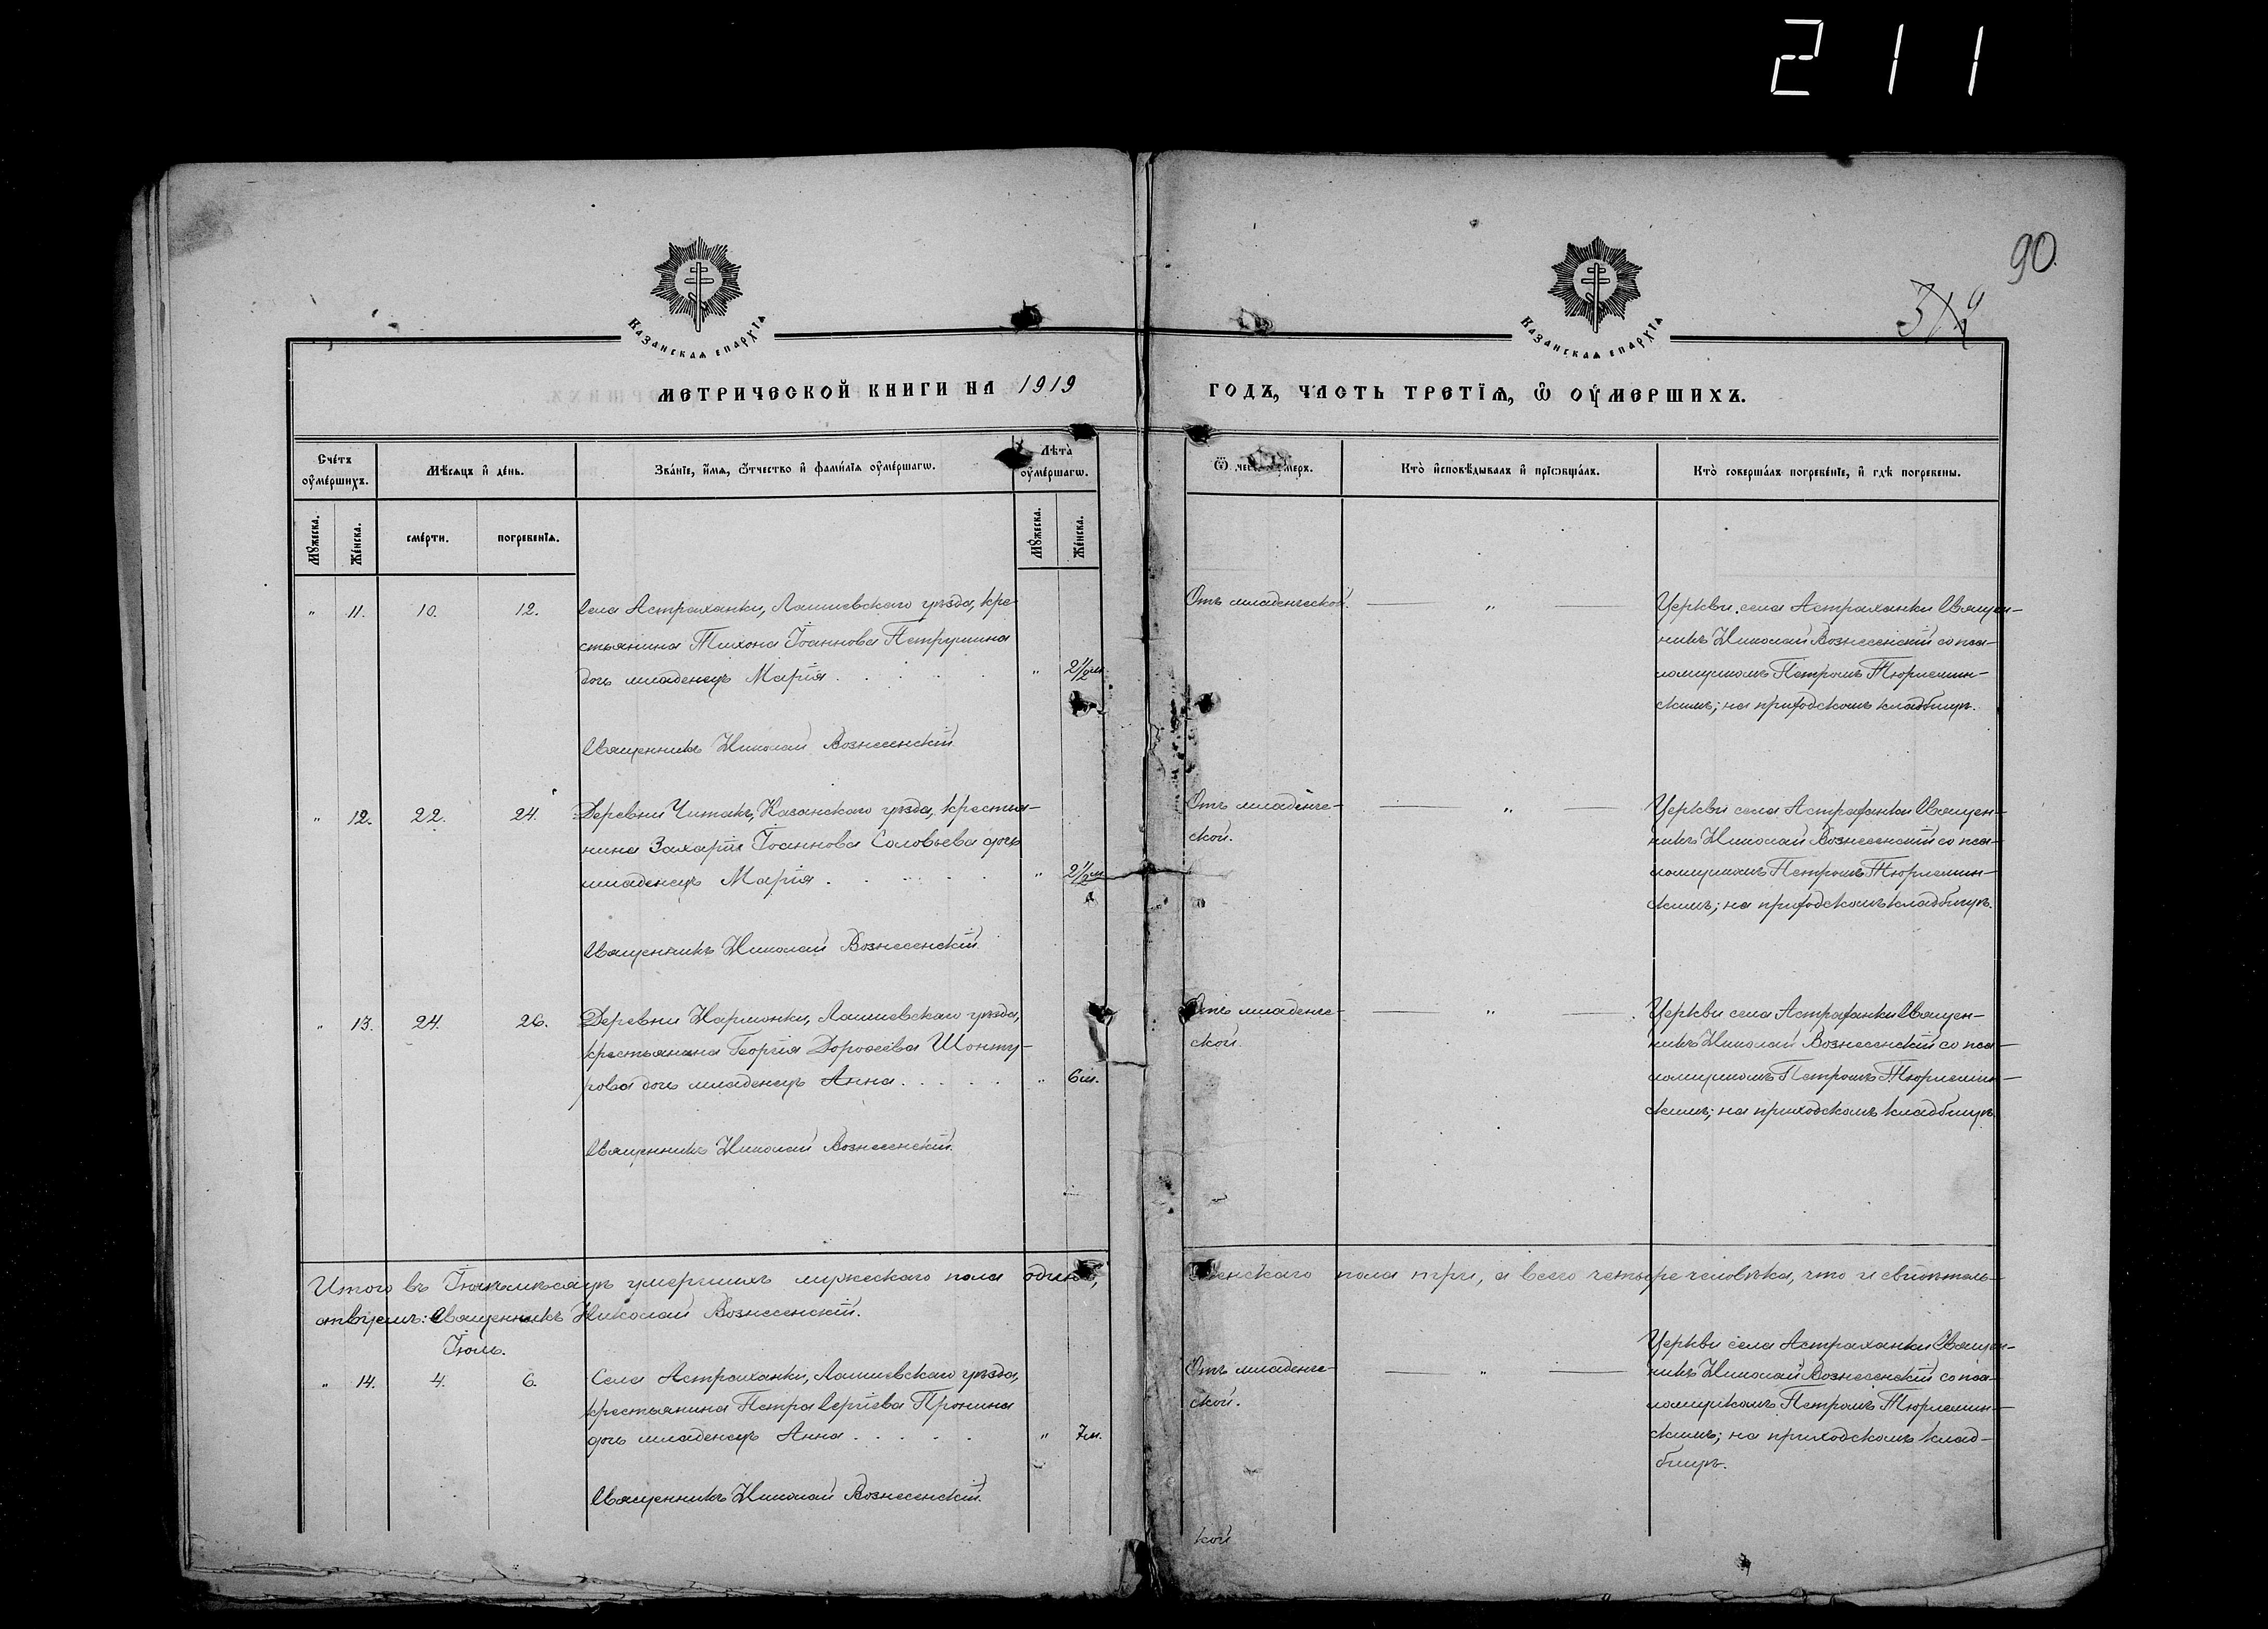 211
90.
312
Казанская епархія
Казанская епархія
Метрической книги на 1919 годъ, часть третія, ѡ оумершихъ.
Счетъ оумершихъ.
Мѣсяцъ и день.
Званіе, имя, ѿчество и фамилія оумершагѡ.
Лѣта оумершагѡ.
Ѿ чего умеръ.
Кто исповѣдывалъ и пріѡбщалъ.
Кто совершалъ погребеніе, и гдѣ погребены.
Мужеска.
Женска.
смерти.
погребенія.
Мужеска.
Женска.
" 11. 10. 12. Села Астраханки, Лаишевскаго уѣзда, кре-
стьянина Тихона Іоаннова Петрушина
дочь младенецъ Марія . . . . . " 2½ м.
Священникъ Николай Вознесенскій.
Отъ младенческой. "
Церкви села Астраханки Священ-
никъ Николай Вознесенскій со пса-
ломщикомъ Петромъ Тюрлемин-
скимъ; на приходскомъ кладбищѣ.
" 12. 22. 24. Деревни Читакъ, Казанскаго уѣзда, крестья-
нина Захарія Іоаннова Соловьева дочь
младенецъ Марія . . . . . " 2½ м.
Священникъ Николай Вознесенскій.
Отъ младенче- "
ской.
Церкви села Астраханки Священ-
никъ Николай Вознесенскій со пса-
ломщикомъ Петромъ Тюрлемин-
скимъ; на приходскомъ кладбищѣ.
" 13. 24. 26. Деревни Нармонки, Лаишевскаго уѣзда,
крестьянина Георгія Дороѳеева Шонту-
рова дочь младенецъ Анна . . . . . " 6 м.
Священникъ Николай Вознесенскій.
Отъ младенче- "
ской.
Церкви села Астраханки Священ-
никъ Николай Вознесенскій со пса-
ломщикомъ Петромъ Тюрлемин-
скимъ; на приходскомъ кладбищѣ.
Итого въ Іюнѣ мѣсяцѣ умершихъ мужескаго пола одинъ, женскаго пола три, а всего четыре человѣка, что и свидѣтель-
ствуемъ: Священникъ Николай Вознесенскій.
Іюль.
" 14. 4. 6. Села Астраханки, Лаишевскаго уѣзда,
крестьянина Петра Сергіева Пронина
дочь младенецъ Анна . . . . . " 7 м.
Священникъ Николай Вознесенскій.
Отъ младенче- "
ской.
Церкви села Астраханки Священ-
никъ Николай Вознесенскій со пса-
ломщикомъ Петромъ Тюрлемин-
скимъ; на приходскомъ клад-
бищѣ.
кой